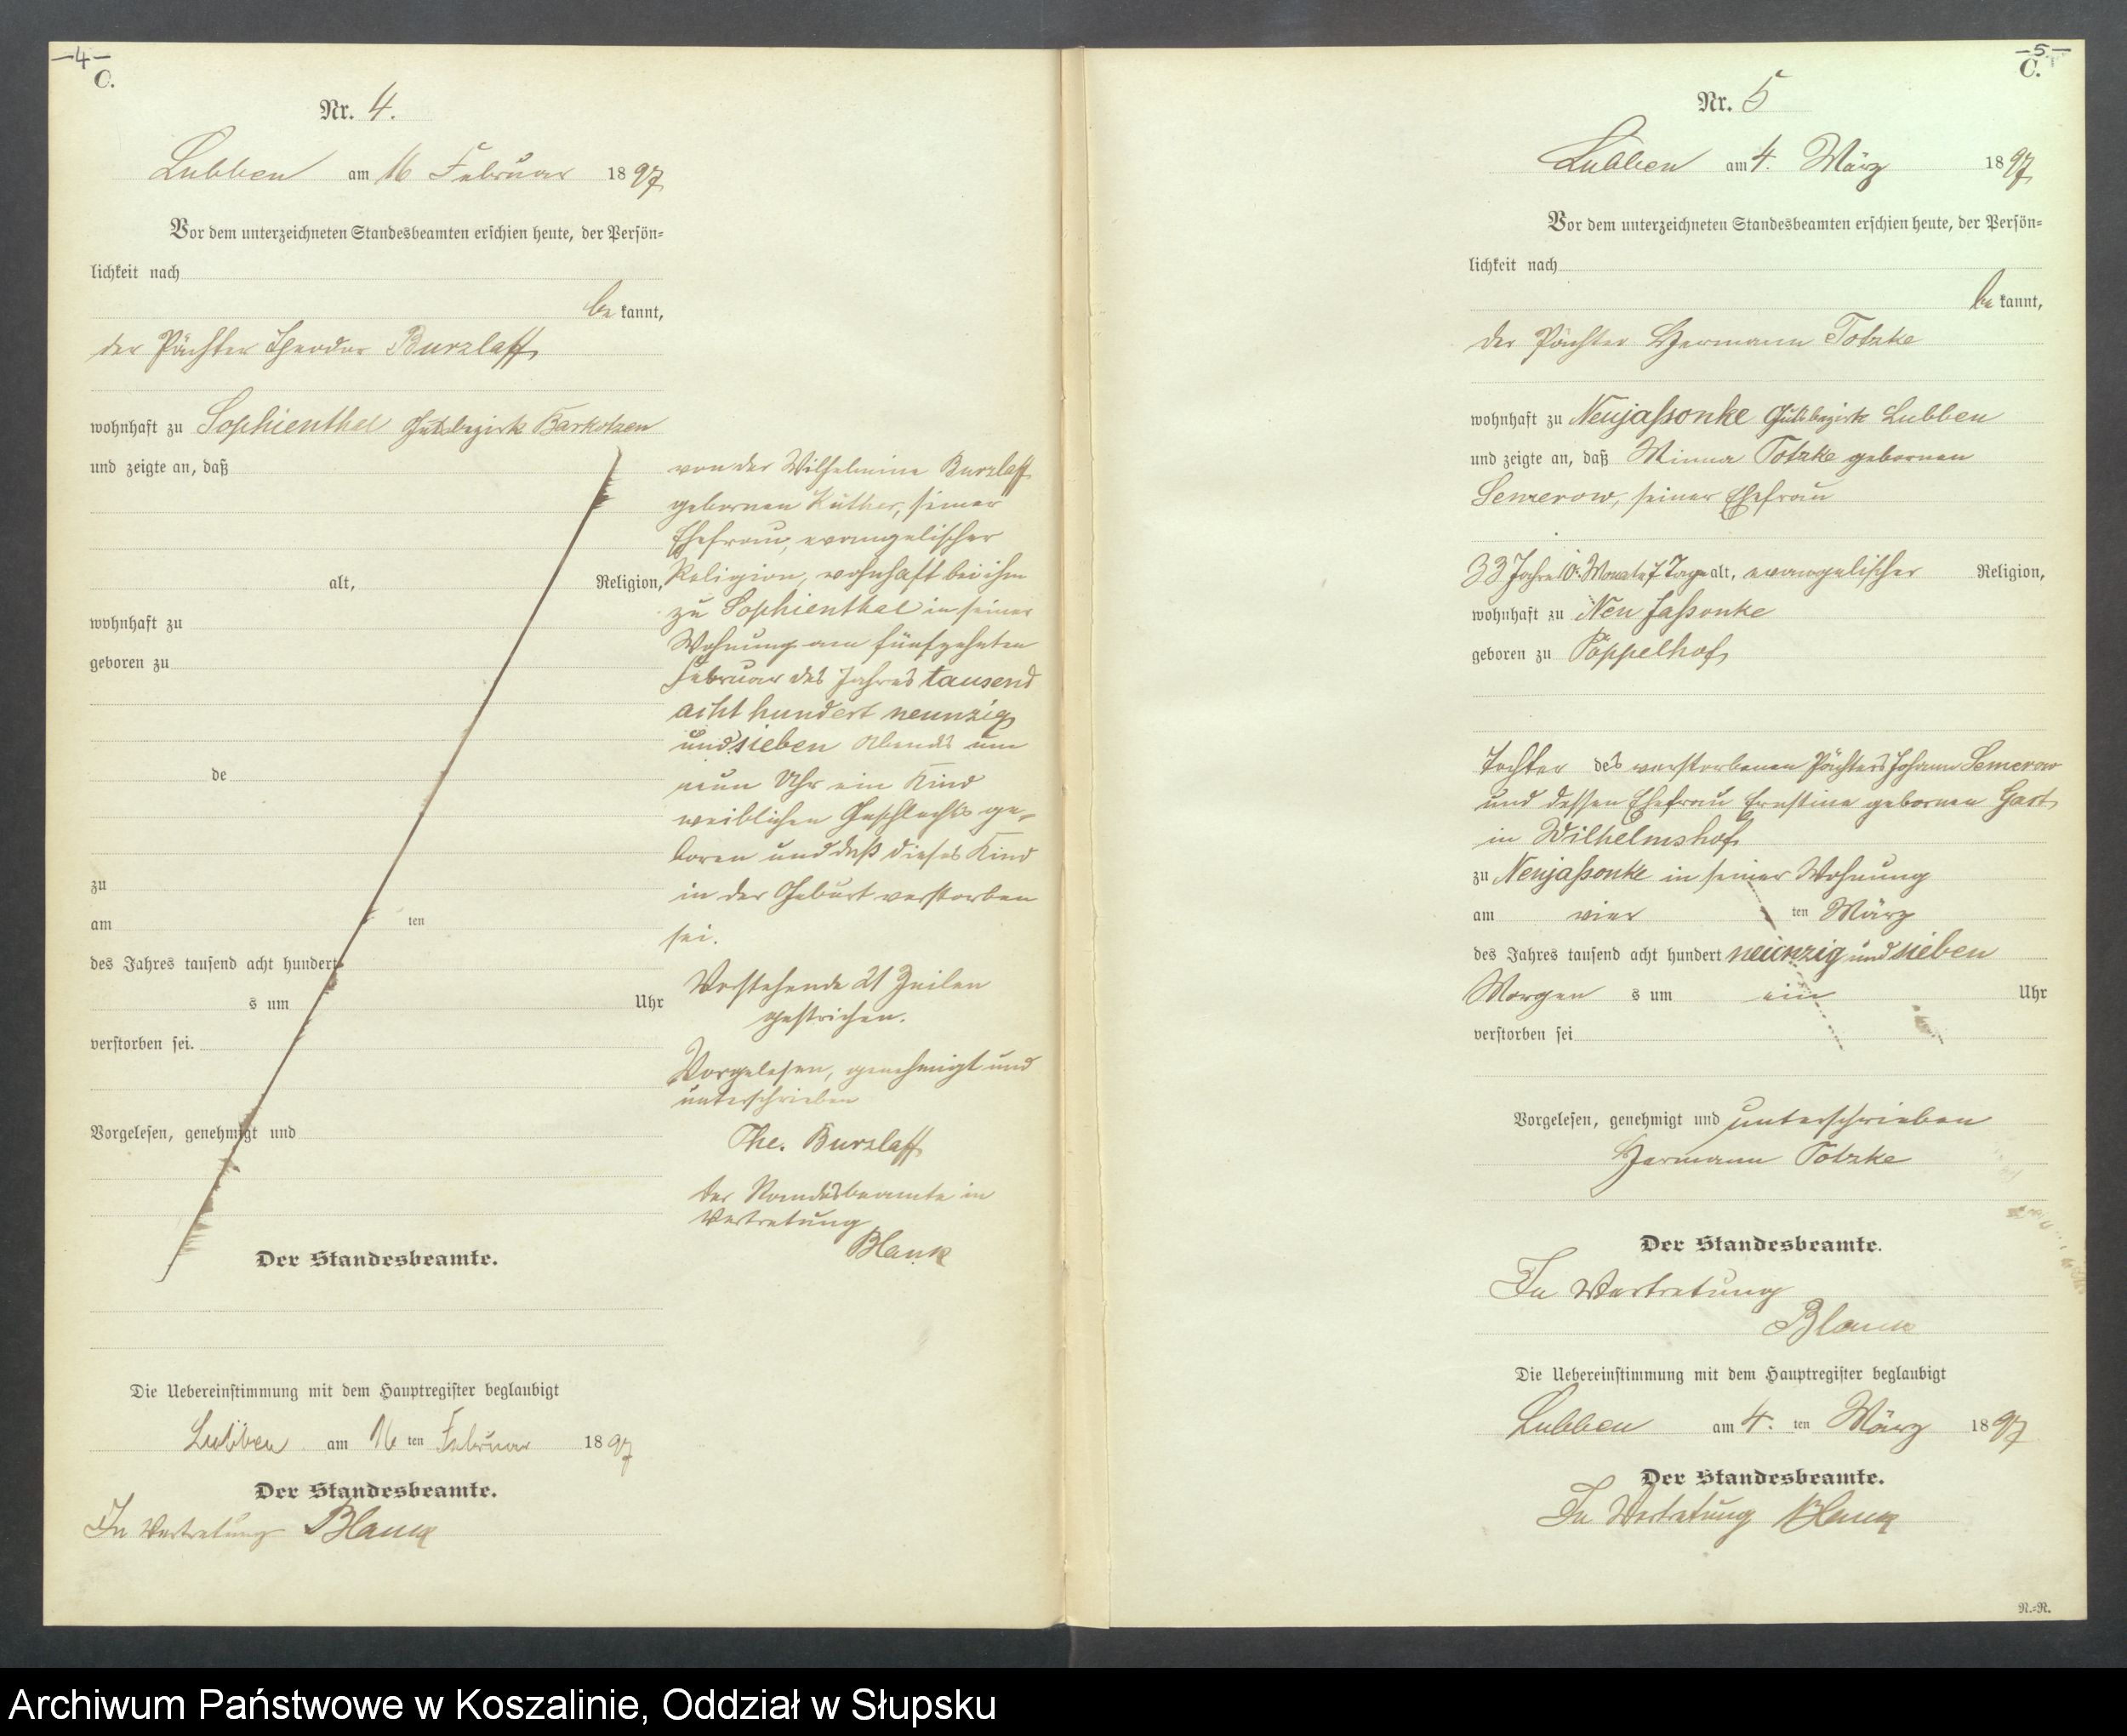 —4—
C.
Nr. 4.
Lubben am 16 Februar 1897
Vor dem unterzeichneten Standesbeamten erschien heute, der Persön=
lichkeit nach
be kannt,
der Pächter Theodor Burzlaff
wohnhaft zu Sophienthal Gutsbezirk Barkotzen
und zeigte an, daß
alt, Religion,
wohnhaft zu
geboren zu
de
zu
am ten
des Jahres tausend acht hundert
s um Uhr
verstorben sei.
Vorgelesen, genehmigt und
Der Standesbeamte.
Die Uebereinstimmung mit dem Hauptregister beglaubigt
Lubben am 16 ten Februar 1897
Der Standesbeamte.
In Vertretung Blank
von der Wilhelmine Burzlaff
gebornen Küther, seiner
Ehefrau, evangelischer
Religion, wohnhaft bei ihm
zu Sophienthal in seiner
Wohnung am fünfzehnten
Februar des Jahres tausend
acht hundert neunzig
und sieben Abends um
neun Uhr ein Kind
weiblichen Geschlechts ge=
boren und daß dieses Kind
in der Geburt verstorben
sei.
Vorstehende 21 Zeilen
gestrichen.
Vorgelesen, genehmigt und
unterschrieben
The. Burzlaff
Der Standesbeamte in
Vertretung
Blank
—5—
C.
Nr. 5
Lubben am 4. März 1897
Vor dem unterzeichneten Standesbeamten erschien heute, der Persön=
lichkeit nach
be kannt,
der Pächter Hermann Totzke
wohnhaft zu Neujaßonke Gutsbezirk Lubben
und zeigte an, daß Minna Totzke gebornen
Semerow, seiner Ehefrau
33 Jahre 10 Monate 7 Tage alt, evangelischer Religion,
wohnhaft zu Neu Jaßonke
geboren zu Poppelhof
Tochter des verstorbenen Pächters Johann Semerow
und dessen Ehefrau Ernstine gebornen Gast
in Wilhelmshof
zu Neujaßonke in seiner Wohnung
am vier ten März
des Jahres tausend acht hundert neunzig und sieben
Morgen s um ein Uhr
verstorben sei
Vorgelesen, genehmigt und unterschrieben
Hermann Totzke
Der Standesbeamte.
In Vertretung
Blank
Die Uebereinstimmung mit dem Hauptregister beglaubigt
Lubben am 4. ten März 1897
Der Standesbeamte.
In Vertretung Blank
N.=N.
Archiwum Państwowe w Koszalinie, Oddział w Słupsku